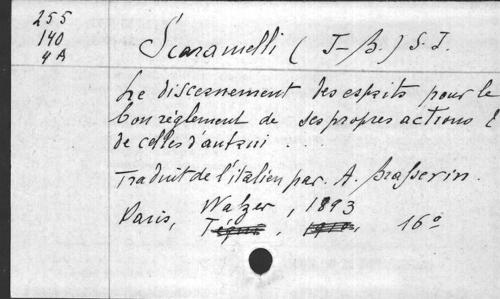 255
140
4A
Scaramelli (J-B.) S.J.
Le discernement des esprits pour le
bon règlement de ses propres actions &
de celles d'autrui . .
Traduit de l'italien par A. Brasserin.
Paris, Walzer, 1893
Téqui, 1910, 16°